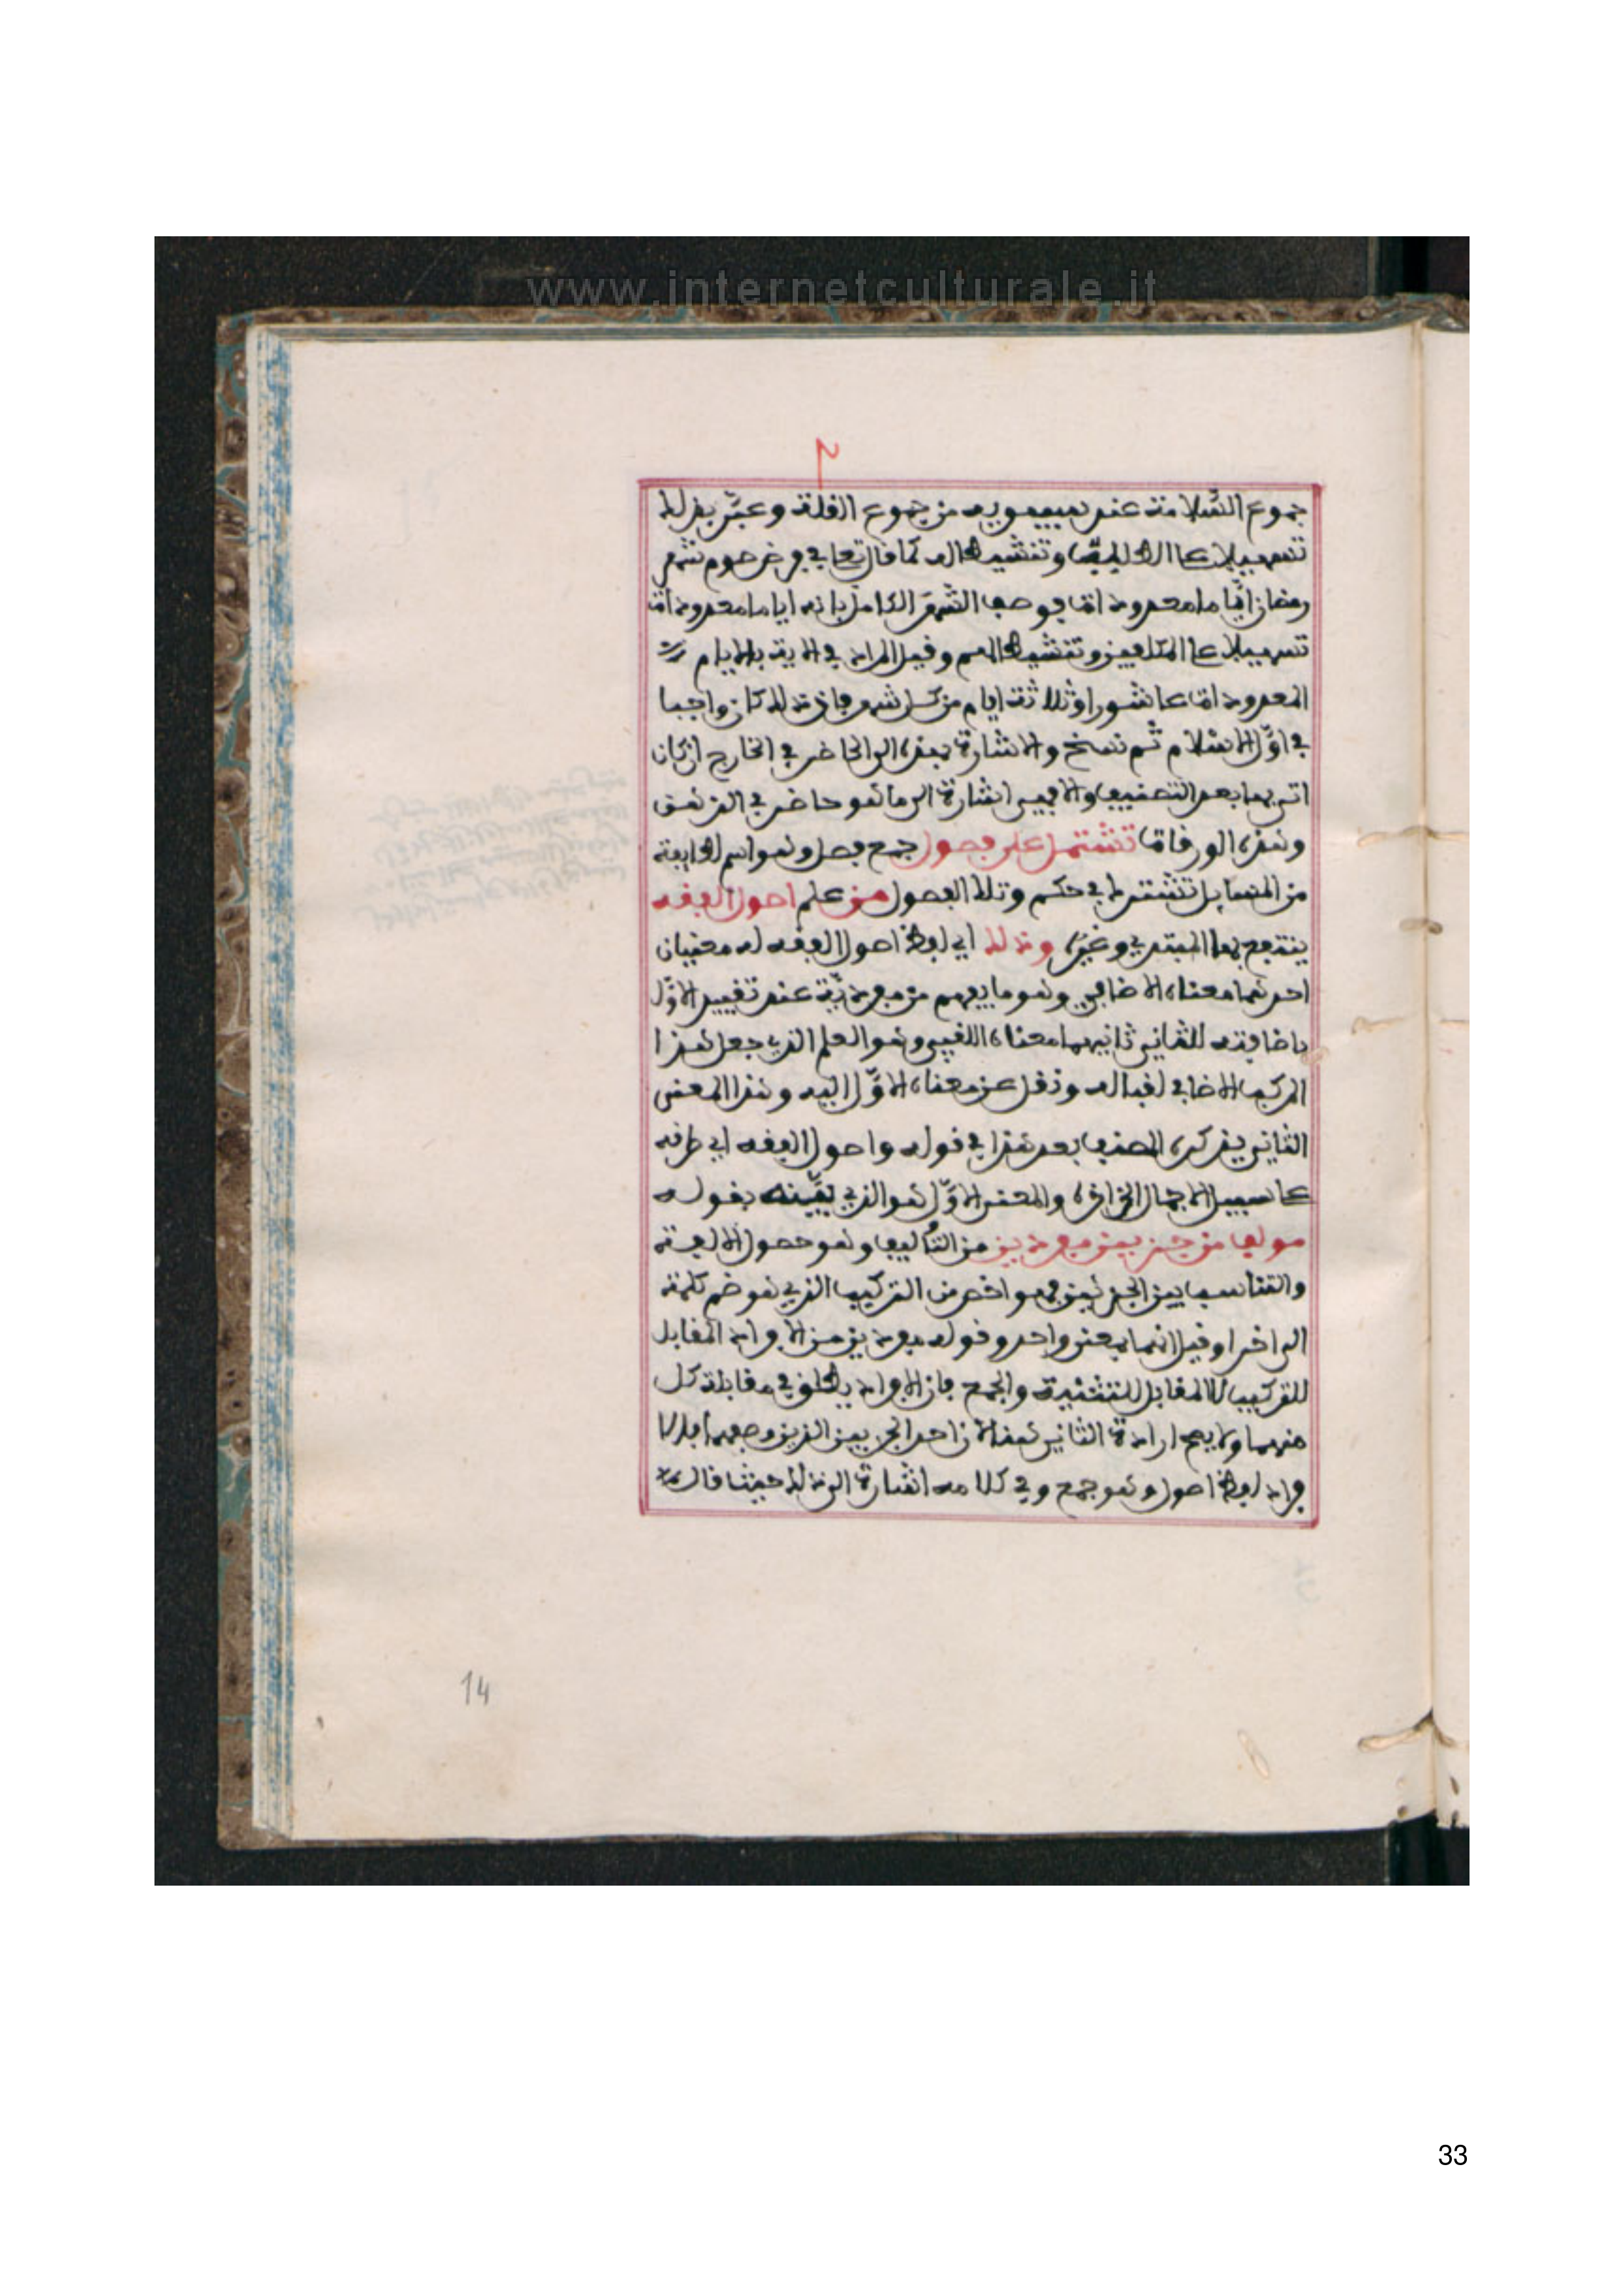 www.internetculturale.it
٢
جموع السّلامة عند سيبويه من جموع القلة وعبّر بذلك
تسهيلا على الطالب وتنشيطا له كما قال تعالى في فرض صوم شهر
رمضان ايّاما معدودات فوصف الشهر الكامل بانه اياما معدودات
تسهيلا على المكلفين وتنشيطا لهم وقيل المراد في الاية بالايام
المعدودات عاشورا وثلاثة ايام من كل شهر فان ذلك كان واجبا
في اوّل الاسلام ثم نسخ والاشارة بهذه الى الحاضر في الخارج ان كان
اتى بها بعد التصنيف والا فهي اشارة الى ما هو حاضر في الذهن
وهذه الورقات تشتمل على فصول جمع فصل وهو اسم لطايفة
من المسايل تشترك في حكم وتلك الفصول من علم اصول الفقه
ينتفع بها المبتدي وغيره وذلك اي لفظ اصول الفقه له معنيان
احدهما معناه الاضافي وهو ما يفهم من مفرديه عند تقييد الاوّل
باضافته للثاني ثانيهما معناه اللقبي وهو العلم الذي جعل هذا
المركب الاضافي لقبا له ونقل عن معناه الاوّل اليه وهذا المعنى
الثاني يذكره المصنف بعد هذا في قوله واصول الفقه اي طرقه
على سبيل الاجمال الخ اذه والمعنى الاوّل هو الذي بيّنه بقوله
مولف من جزيين مفردين من التأليف وهو حصول الالفة
والتناسب بين الجزئين فهو اخص من التركيب الذي هو ضم كلمة
الى اخرا وقيل انهما بمعنى واحد وقوله مفردين من الافراد المقابل
للتركيب لا المقابل للتثنية والجمع فان الافراد يطلق في مقابلة كل
منهما ولا يصح ارادة الثاني هنا لان احد الجزيين الذين وصفهما بالا
فراد لفظ اصول وهو جمع وفي كلامه اشارة الى ذلك حيث قال
14
33